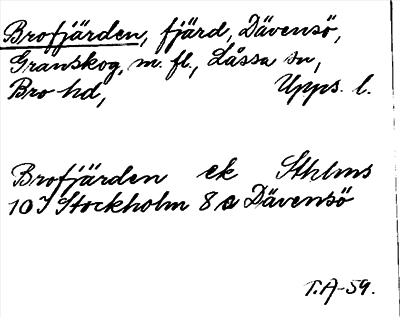 Brofjärden, fjärd, Dävensö,
Granskog, m. fl., Låssa sn,
Bro hd, Upps. l.
Brofjärden ek Sthlms
10I Stockholm 8 a Dävensö
T.A-59.